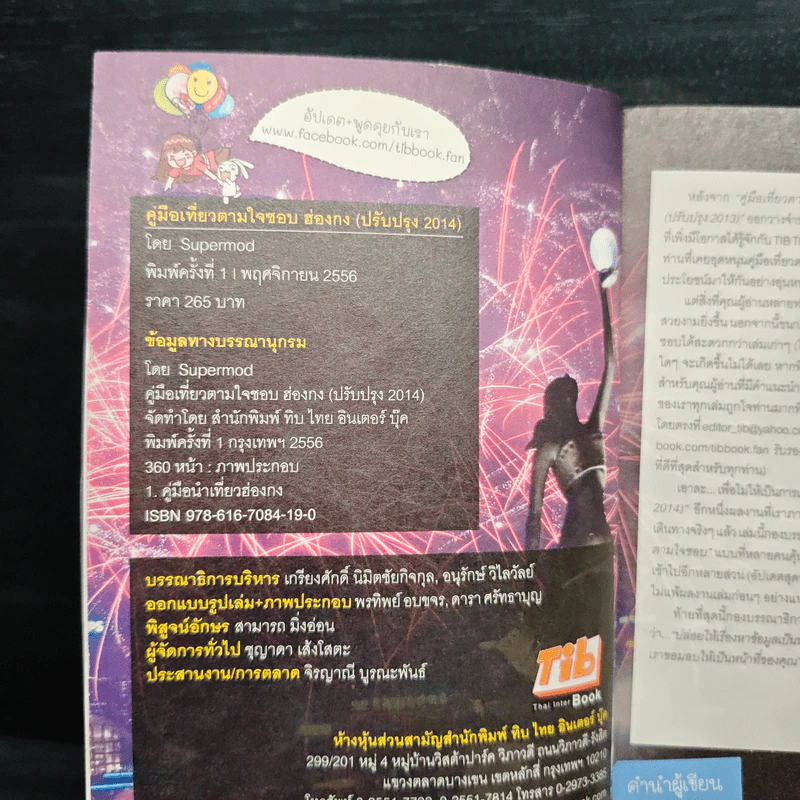 อัปเดต+พูดคุยกับเรา
www.facebook.com/tibbook.fan
คู่มือเที่ยวตามใจชอบ ฮ่องกง (ปรับปรุง 2014)
โดย Supermod
พิมพ์ครั้งที่ 1 | พฤศจิกายน 2556
ราคา 265 บาท
ข้อมูลทางบรรณานุกรม
โดย Supermod
คู่มือเที่ยวตามใจชอบ ฮ่องกง (ปรับปรุง 2014)
จัดทำโดย สำนักพิมพ์ ทิบ ไทย อินเตอร์ บุ๊ค
พิมพ์ครั้งที่ 1 กรุงเทพฯ 2556
360 หน้า : ภาพประกอบ
1. คู่มือนำเที่ยวฮ่องกง
ISBN 978-616-7084-19-0
บรรณาธิการบริหาร เกรียงศักดิ์ นิมิตชัยกิจกุล, อนุรักษ์ วิไลวัลย์
ออกแบบรูปเล่ม+ภาพประกอบ พรทิพย์ อบขจร, ดารา ศรัทธาบุญ
พิสูจน์อักษร สามารถ มิ่งอ่อน
ผู้จัดการทั่วไป ชุญาดา เส้งโสตะ
ประสานงาน/การตลาด จิรญาณี บูรณะพันธ์
Tib
Thai Inter Book
ห้างหุ้นส่วนสามัญสำนักพิมพ์ ทิบ ไทย อินเตอร์ บุ๊ค
299/201 หมู่ 4 หมู่บ้านวิสต้าปาร์ค วิภาวดี ถนนวิภาวดี-รังสิต
แขวงตลาดบางเขน เขตหลักสี่ กรุงเทพฯ 10210
0-2551-7814 โทรสาร 0-2973-3385
หลังจาก "คู่มือเที่ยวตา
(ปรับปรุง 2013)" ออกวางจำ
ที่เพิ่งมีโอกาสได้รู้จักกับ TIB T
ท่านที่เคยอุดหนุนคู่มือเที่ยวต
ประโยชน์มาให้กันอย่างอุ่นห
แต่สิ่งที่คุณผู้อ่านหลายท
สวยงามยิ่งขึ้น นอกจากนี้ขน
ชอบได้สะดวกกว่าเล่มเก่าๆ (
ใดๆ จะเกิดขึ้นไม่ได้เลย หาก
สำหรับคุณผู้อ่านที่มีคำแนะนำ
ของเราทุกเล่มถูกใจท่านมากที่
โดยตรงที่ editor_tib@yahoo.c
book.com/tibbook.fan รับรอ
ที่ดีที่สุดสำหรับทุกท่าน)
เอาละ... เพื่อไม่ให้เป็นการเ
2014)" อีกหนึ่งผลงานที่เราภา
เดินทางจริงๆ แล้ว เล่มนี้กองบร
ตามใจชอบ" แบบที่หลายคนคุ้น
เข้าไปอีกหลายส่วน (อัปเดตสุด
ไม่แพ้ผลงานเล่มก่อนๆ อย่างแน
ท้ายที่สุดนี้กองบรรณาธิกา
ว่า... "ปล่อยให้เรื่องหาข้อมูลเป็น
เราขอมอบให้เป็นหน้าที่ของคุณ
คำนำผู้เขียน